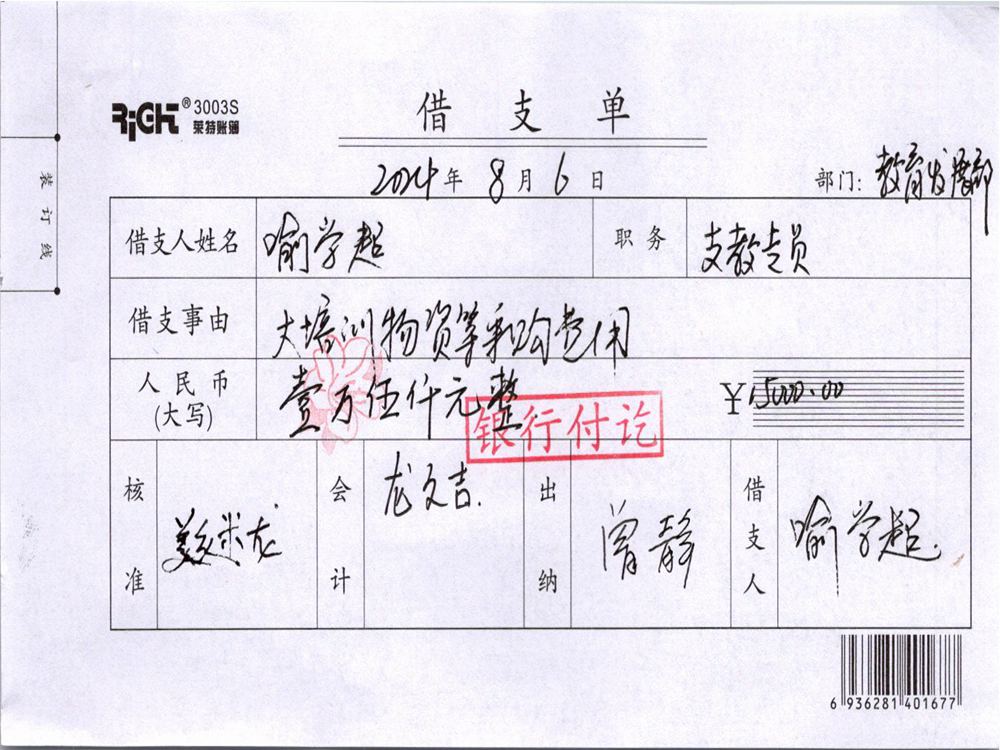 RiGHT®3003S
莱特账簿
借支单
2014年8月6日
部门:教育发展部
装订线
借支人姓名 喻学超 职务 支教专员
借支事由 大培训物资等采购费用
人民币(大写) 壹万伍仟元整 ¥15000.00
银行付讫
核准 会计 龙文吉. 出纳 曾静 借支人 喻学超
6 936281 401677